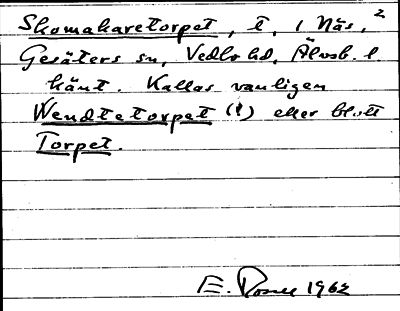 Skomakaretorpet, t, i Näs, 2
Gesäters sn, Vedbo hd, Älvsb. l.
känt. Kallas vanligen
Wendtetorpet (!) eller blott
Torpet.
E. 1962